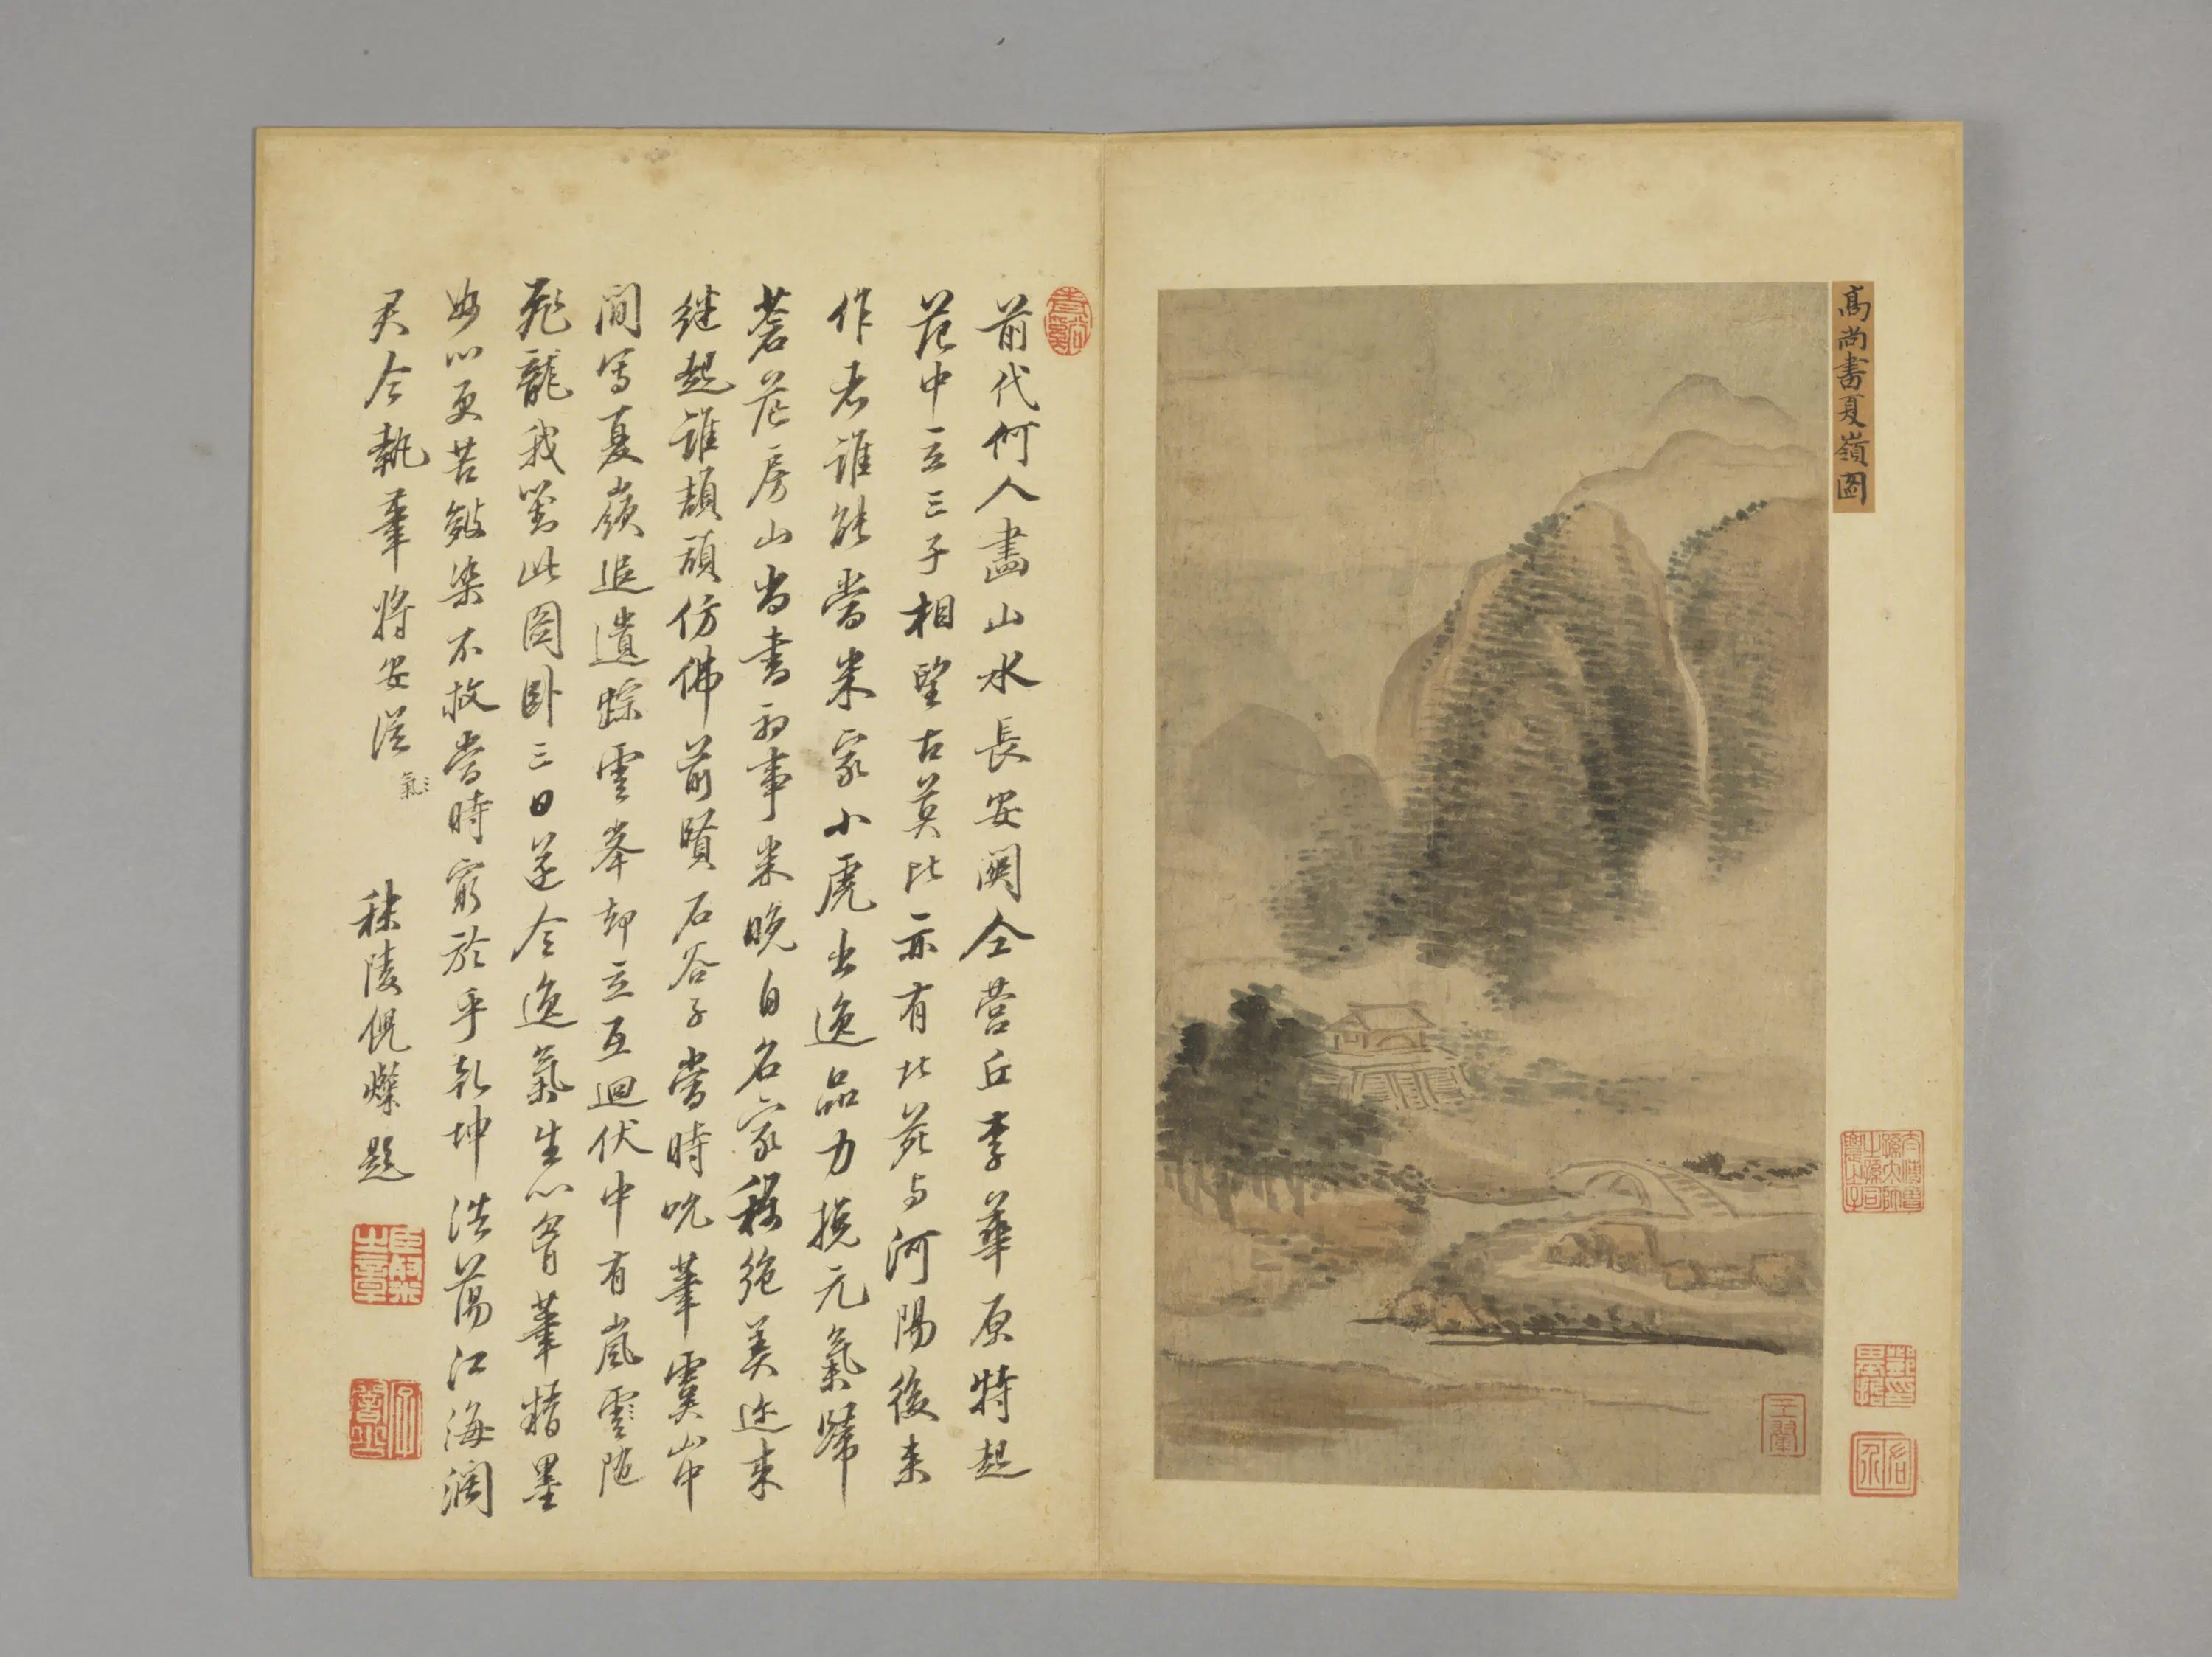 高尚書夏嶺圖
前代何人畫山水長安關仝營丘李華原特起
范中立三子相望古莫比亦有北苑与河陽後来
作者誰能當米家小虎出逸品力挽元氣歸
蒼茫房山尚書初事米晚自名家稱絶美近来
継起誰頡頏仿佛前賢石谷子當時吮筆雲山中
間寫夏嶺追遺踪雲峯却立互迴伏中有嵐雲隨
飛龍我對此圖卧三日遂令逸氣生心胷筆精墨
妙心更苦皴染不放當時窮於乎乾坤浩蕩江海濶
君今執筆將安從
氣
秣陵倪燦題
臣燦之章
王翬